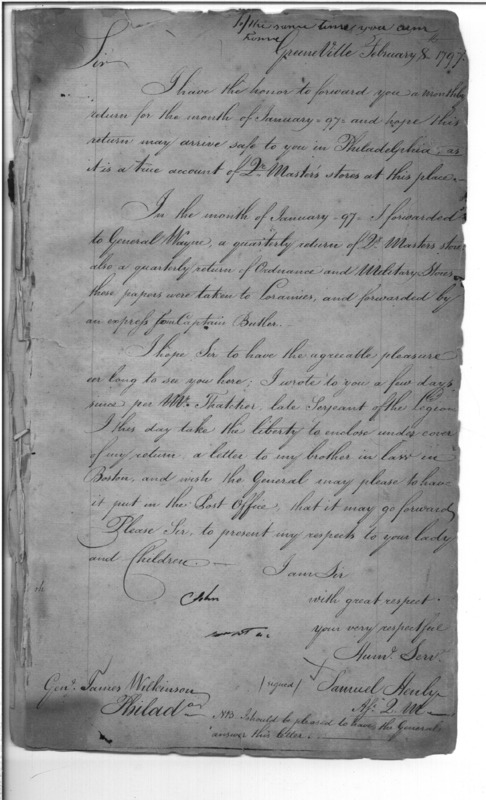 At the same time you can
GreeneVille February 8. 1797.
Sir
I have the honor to forward you a monthly
return for the month of January -97- and hope this
return may arrive safe to you in Philadelphia, as
it is a true account of Qr. Master's stores at this place.-
In the month of January -97- I forwarded
to General Wayne, a quarterly return of Qr. Masters stores
also a quarterly return of Ordnance and Military Stores
these papers were taken to Loramies, and forwarded by
an express from Captain Butler.-
I hope Sir to have the agreeable pleasure
er long to see you here; I wrote to you a few days
since per Mr. Thatcher, late Serjeant of the Legion
I this day take the liberty to enclose under cover
of my return, a letter to my brother in law in
Boston, and wish the General may please to have
it put in the Post Office, that it may go forward
Please Sir, to present my respects to your lady
and Children.-
I am Sir
with great respect.
your very respectful
Huml. Servt.
(signed) Samuel Henly
Genl. James Wilkinson
Philada.
NB. I should be pleased to have the Generals
answer this letter.